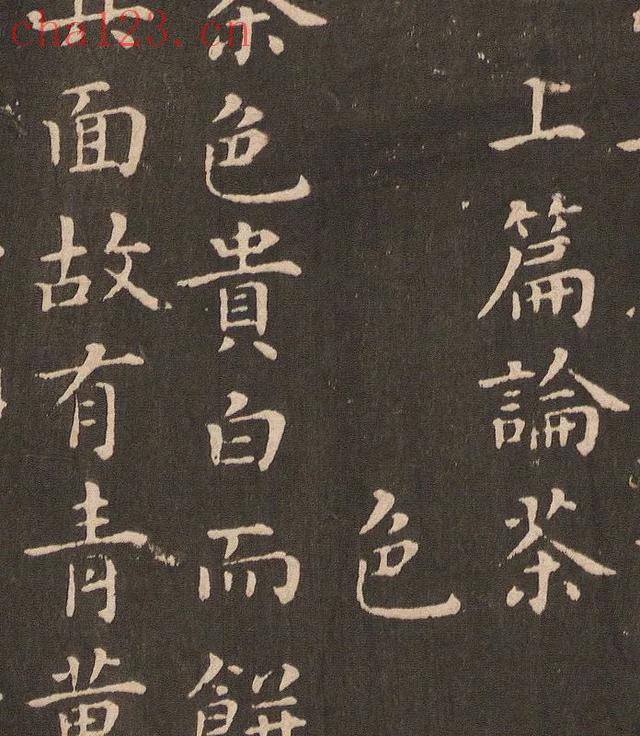 上篇論茶
色
茶色貴白而餅
其面故有青黃
cha123.cn